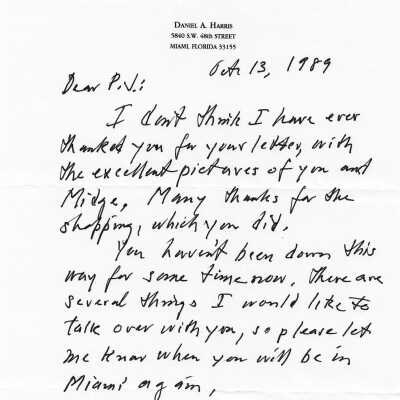 DANIEL A. HARRIS
5840 S.W. 48th STREET
MIAMI, FLORIDA 33155
Oct. 13, 1989
Dear P.J.:
I don't think I have ever
thanked you for your letter, with
the excellent pictures of you and
Midge. Many thanks for the
shopping, which you did.
You haven't been down this
way for some time now. There are
several things I would like to
talk over with you, so please let
me know when you will be in
Miami again,